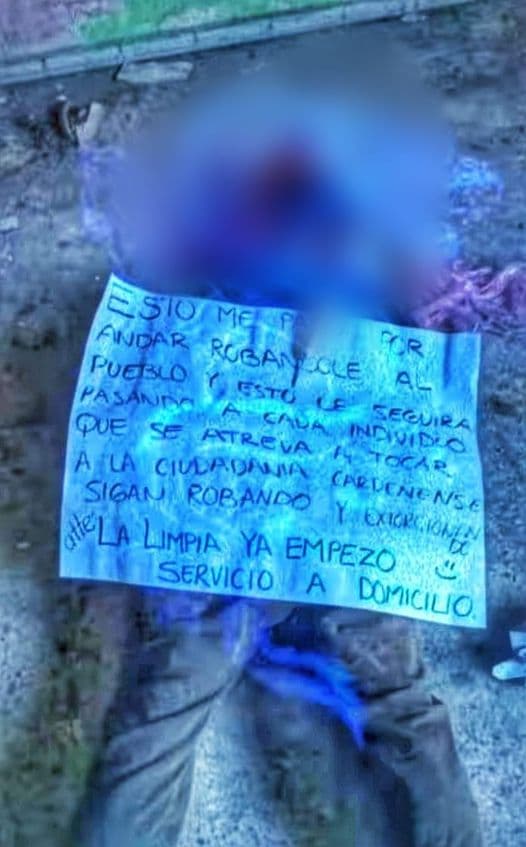 ESTO ME P POR
ANDAR ROBANDOLE AL
PUEBLO Y ESTO LE SEGUIRA
PASANDO A CADA INDIVIDUO
QUE SE ATREVA A TOCAR
A LA CIUDADANIA CARDENENSE
SIGAN ROBANDO Y EXTORCIONEN
atte: LA LIMPIA YA EMPEZO
SERVICIO A DOMICILIO.